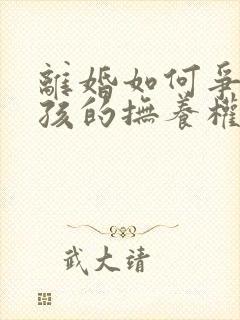 離婚如何爭
孩的撫養權
武大靖